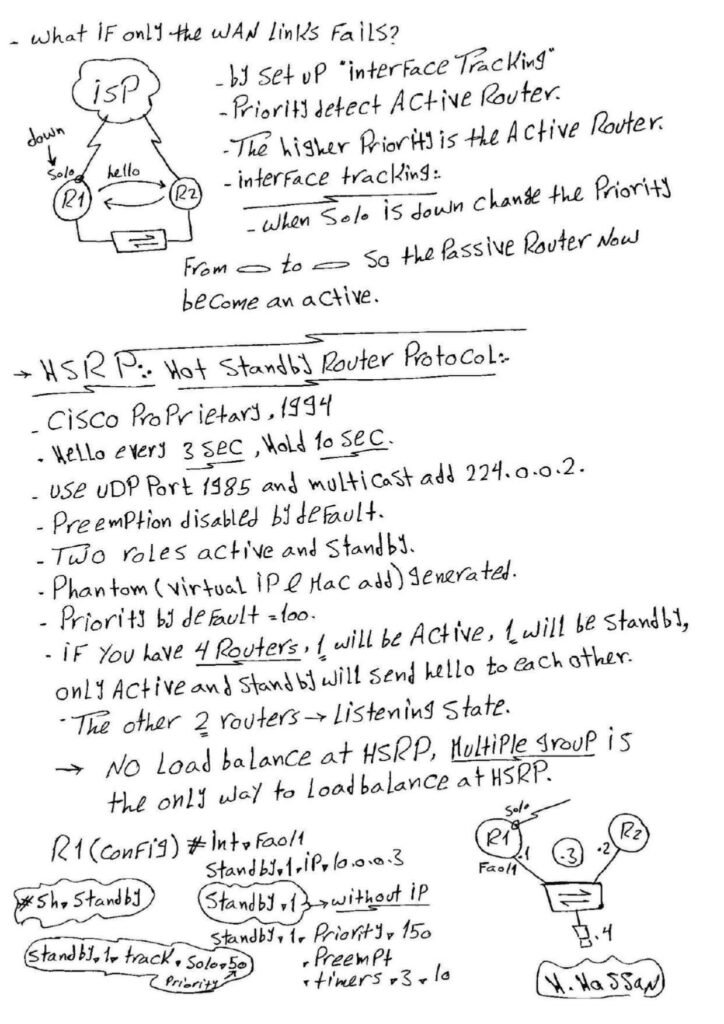 - What if only the WAN Links Fails?
isp
down
Solo
hello
R1
R2
- by set up "interface Tracking"
- Priority detect Active Router.
- The higher Priority is the Active Router.
- interface tracking:.
- when Solo is down change the Priority
From to So the Passive Router Now
become an active.
→ HSRP:. Hot Standby Router Protocol:.
- Cisco Proprietary, 1994
- Hello every 3 sec, Hold 10 sec.
- use UDP Port 1985 and multicast add 224.0.0.2.
- Preemption disabled by default.
- Two roles active and Standby.
- Phantom (virtual iP & Mac add) generated.
- Priority by default =100.
- iF You have 4 Routers, 1 will be Active, 1 will be Standby,
only Active and Standby will send hello to each other.
- The other 2 routers → Listening State.
→ No Load balance at HSRP, Multiple group is
the only way to Loadbalance at HSRP.
R1(config)#int Fa0/1
Standby 1 iP 10.0.0.3
#Sh Standby
Standby 1 → without iP
Standby 1 Priority 150
Preempt
timers 3 10
Standby 1 track Solo 50
Priority
Solo
R1
R2
Fa0/1
.1
.3
.2
.4
H.HaSSaN